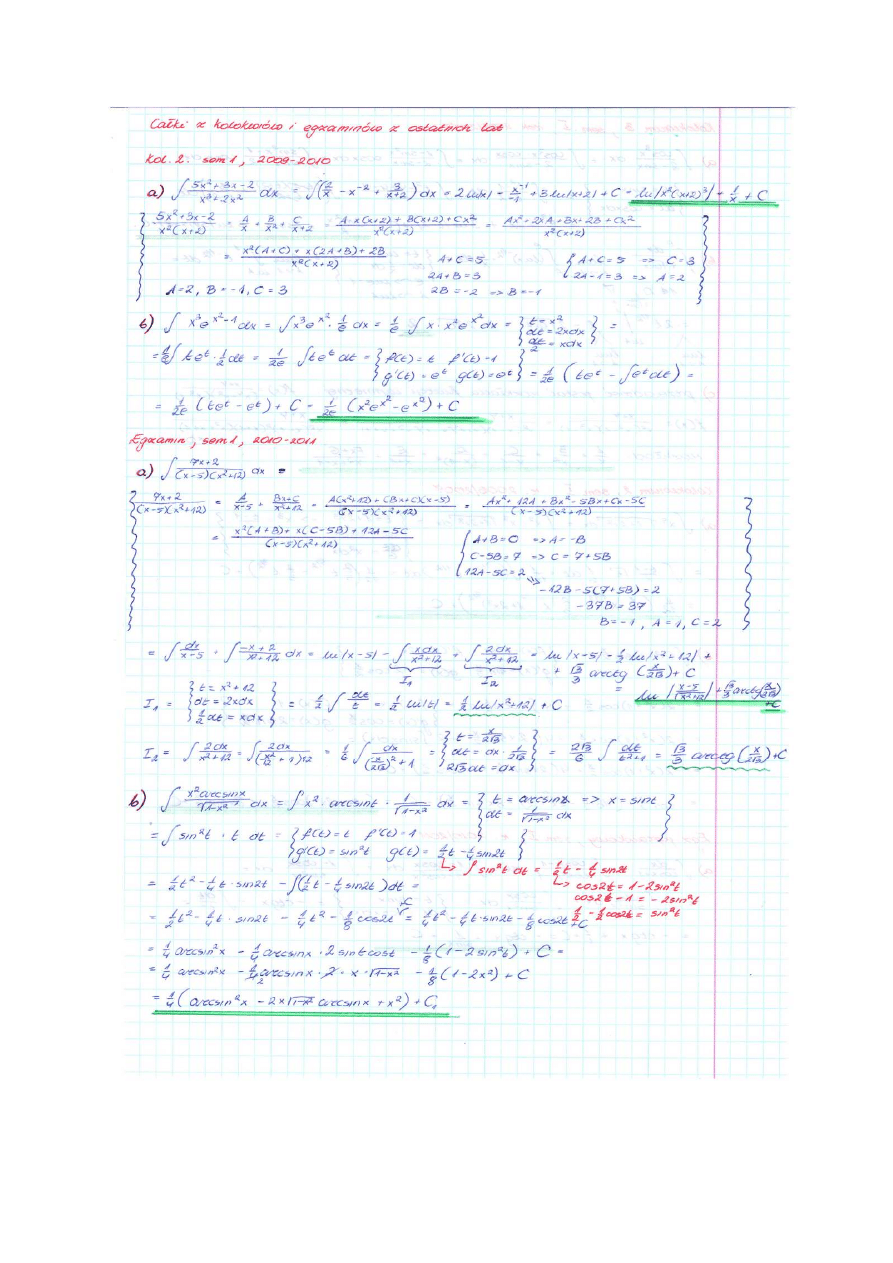 Całki z kolokwiów i egzaminów z ostatnich lat
Kol. 2. sem 1, 2009-2010
a) ∫ (5x²+3x-2)/(x³+2x²) dx = ∫(2/x - x⁻² + 3/(x+2)) dx = 2 ln|x| - x⁻¹/-1 + 3 ln|x+2| + C = ln|x²(x+2)³| + 1/x + C
(5x²+3x-2)/(x²(x+2)) = A/x + B/x² + C/(x+2) = (A·x(x+2) + B(x+2) + Cx²)/(x²(x+2)) = (Ax²+2xA+Bx+2B+Cx²)/(x²(x+2))
= (x²(A+C) + x(2A+B) + 2B)/(x²(x+2)) A+C=5 { A+C=5 => C=3
2A+B=3 2A-1=3 => A=2
A=2, B=-1, C=3 2B=-2 => B=-1
b) ∫ x³e^(x²-1) dx = ∫x³e^(x²)·1/e dx = 1/e ∫ x·x²e^(x²) dx = { t=x² dt=2xdx dt/2 = xdx } =
= 1/e ∫ te^t·1/2 dt = 1/2e ∫te^t dt = { f(t)=t f'(t)=1 g'(t)=e^t g(t)=e^t } = 1/2e (te^t - ∫e^t dt) =
= 1/2e (te^t - e^t) + C = 1/2e (x²e^(x²) - e^(x²)) + C
Egzamin, sem 1, 2010-2011
a) ∫ (7x+2)/((x-5)(x²+12)) dx =
(7x+2)/((x-5)(x²+12)) = A/(x-5) + (Bx+C)/(x²+12) = (A(x²+12)+(Bx+C)(x-5))/((x-5)(x²+12)) = (Ax²+12A+Bx²-5Bx+Cx-5C)/((x-5)(x²+12))
= (x²(A+B)+x(C-5B)+12A-5C)/((x-5)(x²+12)) { A+B=0 => A=-B
C-5B=7 => C=7+5B
12A-5C=2 =>
-12B-5(7+5B)=2
-37B=37
B=-1, A=1, C=2
= ∫ dx/(x-5) + ∫ (-x+2)/(x²+12) dx = ln|x-5| - ∫ xdx/(x²+12) + ∫ 2dx/(x²+12) = ln|x-5| - 1/2 ln|x²+12| +
I₁ I₂ + √3/3 arctg (x/2√3) + C
= ln |(x-5)/√(x²+12)| + √3/3 arctg(x/2√3) + C
I₁ = { t=x²+12 dt=2xdx 1/2 dt=xdx } = 1/2 ∫ dt/t = 1/2 ln|t| = 1/2 ln|x²+12| + C
I₂ = ∫ 2dx/(x²+12) = ∫ 2dx/((x²/12+1)12) = 1/6 ∫ dx/((x/2√3)²+1) = { t=x/2√3 dt=dx·1/2√3 2√3dt=dx } = 2√3/6 ∫ dt/(t²+1) = √3/3 arctg(x/2√3)+C
b) ∫ x²arcsinx/√(1-x²) dx = ∫x²·arcsint·1/√(1-x²) dx = { t=arcsinx => x=sint dt=1/√(1-x²) dx }
= ∫sin²t·t dt = { f(t)=t f'(t)=1 g'(t)=sin²t g(t)=1/2t-1/4sin2t }
↳ ∫sin²t dt = 1/2t - 1/4 sin2t
↳ cos2t = 1-2sin²t
cos2t-1 = -2sin²t
1/2 - 1/2cos2t = sin²t
= 1/2t² - 1/4t·sin2t - ∫(1/2t - 1/4sin2t)dt =
= 1/2t² - 1/4t·sin2t - 1/4t² - 1/8cos2t +C = 1/4t² - 1/4t·sin2t - 1/8cos2t +C
= 1/4 arcsin²x - 1/4 arcsinx·2sintcost - 1/8(1-2sin²t) + C =
= 1/4 arcsin²x - 1/2 arcsinx·x·√(1-x²) - 1/8(1-2x²) + C
= 1/4(arcsin²x - 2x√(1-x²) arcsinx + x²) + C₁